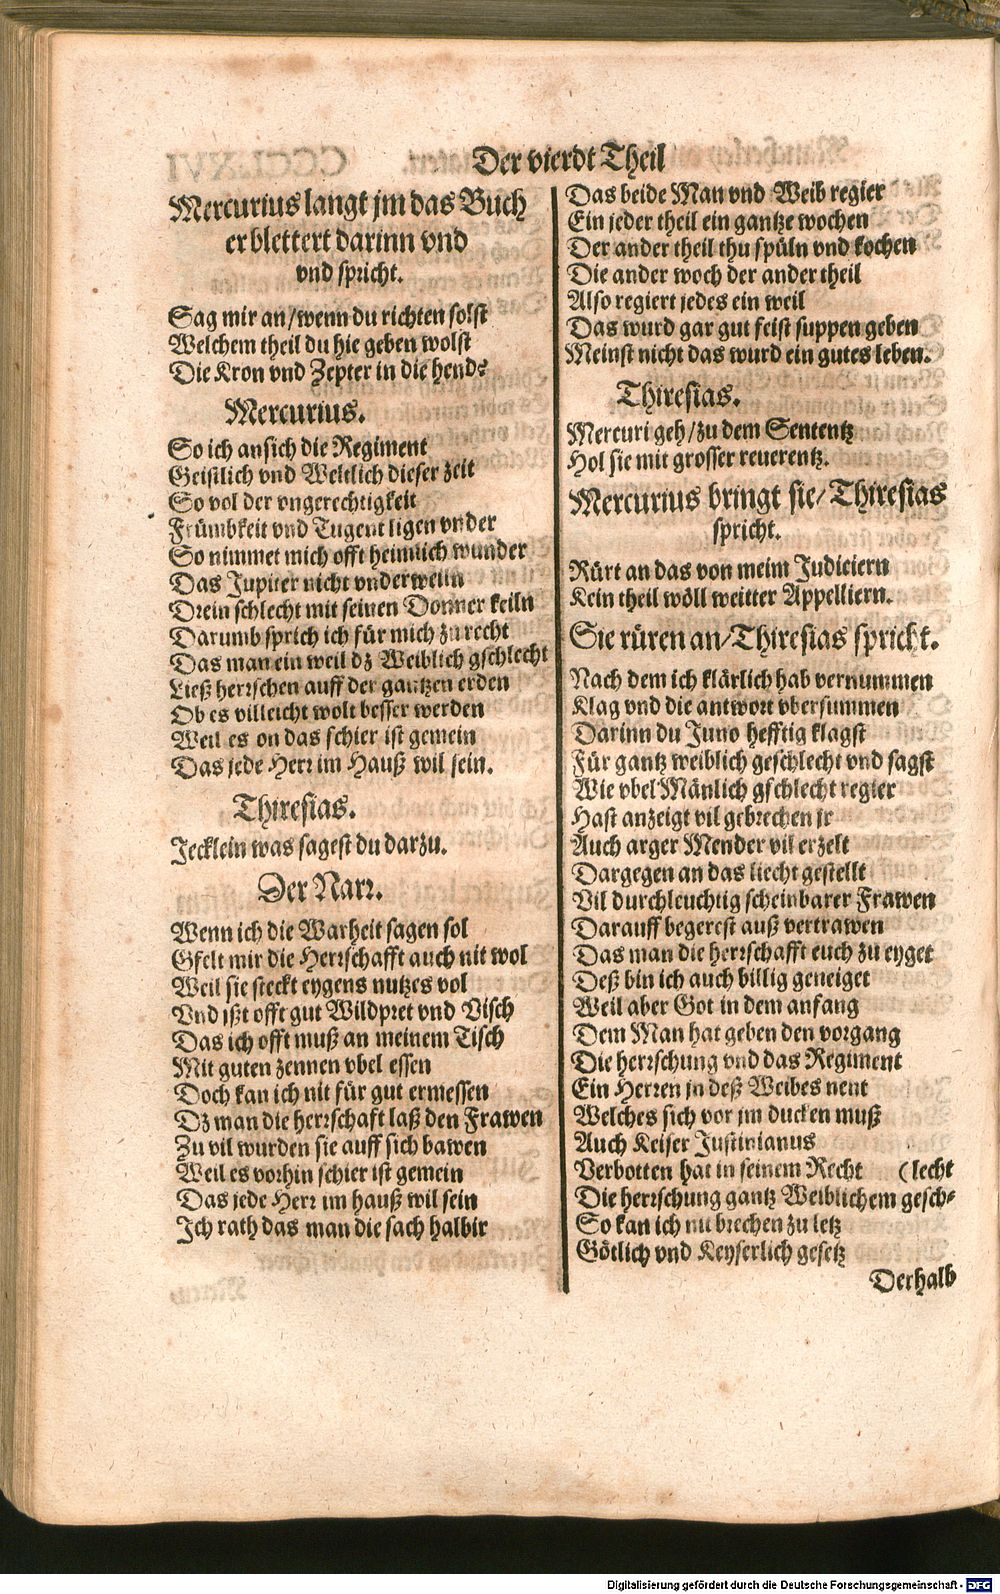 Der vierdt Theil
Mercurius langt jm das Buch
er blettert darinn vnd
vnd spricht.
Sag mir an/wenn du richten solst
Welchem theil du hie geben wolst
Die Kron vnd Zepter in die hend?
Mercurius.
So ich ansich die Regiment
Geistlich vnd Weltlich dieser zeit
So vol der vngerechtigkeit
Frümbkeit vnd Tugent ligen vnder
So nimmet mich offt heimlich wunder
Das Jupiter nicht vnderweiln
Drein schlecht mit seinen Donner keiln
Darumb sprich ich für mich zu recht
Das man ein weil dz Weiblich gschlecht
Ließ herrschen auff der gantzen erden
Ob es villeicht wolt besser werden
Weil es on das schier ist gemein
Das jede Herr im Hauß wil sein.
Thiresias.
Jecklein was sagest du darzu.
Der Narr.
Wenn ich die Warheit sagen sol
Gfelt mir die Herrschafft auch nit wol
Weil sie steckt eygens nutzes vol
Vnd ißt offt gut Wildpret vnd Visch
Das ich offt muß an meinem Tisch
Mit guten zennen vbel essen
Doch kan ich nit für gut ermessen
Dz man die herrschaft laß den Frawen
Zu vil wurden sie auff sich bawen
Weil es vorhin schier ist gemein
Das jede Herr im hauß wil sein
Ich rath das man die sach halbir
Das beide Man vnd Weib regier
Ein jeder theil ein gantze wochen
Der ander theil thu spüln vnd kochen
Die ander woch der ander theil
Also regiert jedes ein weil
Das wurd gar gut feist suppen geben
Meinst nicht das wurd ein gutes leben.
Thiresias.
Mercuri geh/zu dem Sententz
Hol sie mit grosser reuerentz.
Mercurius bringt sie/Thiresias
spricht.
Rürt an das von meim Judiciern
Kein theil wöll weitter Appelliern.
Sie rüren an/Thiresias spricht.
Nach dem ich klärlich hab vernummen
Klag vnd die antwort vbersummen
Darinn du Juno hefftig klagst
Für gantz weiblich geschlecht vnd sagst
Wie vbel Mänlich gschlecht regier
Hast anzeigt vil gebrechen jr
Auch arger Mender vil erzelt
Dargegen an das liecht gestellt
Vil durchleuchtig scheinbarer Frawen
Darauff begerest auß vertrawen
Das man die herrschafft euch zu eyget
Deß bin ich auch billig geneiget
Weil aber Got in dem anfang
Dem Man hat geben den vorgang
Die herrschung vnd das Regiment
Ein Herren jn deß Weibes nent
Welches sich vor jm ducken muß
Auch Keiser Justinianus
Verbotten hat in seinem Recht (lecht
Die herrschung gantz Weiblichem gesch-
So kan ich nu brechen zu letz
Götlich vnd Keyserlich gesetz
Derhalb
Digitalisierung gefördert durch die Deutsche Forschungsgemeinschaft - DFG